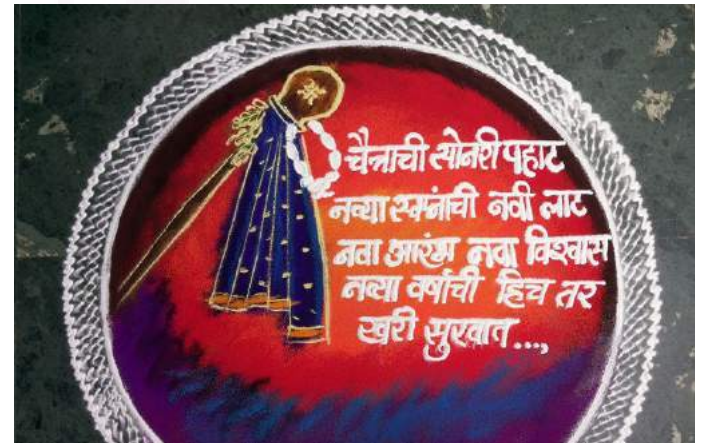 चैत्राची सोनेरी पहाट
नव्या स्वप्नांची नवी लाट
नवा आरंभ नवा विश्वास
नव्या वर्षाची हिच तर
खरी सुरवात...,